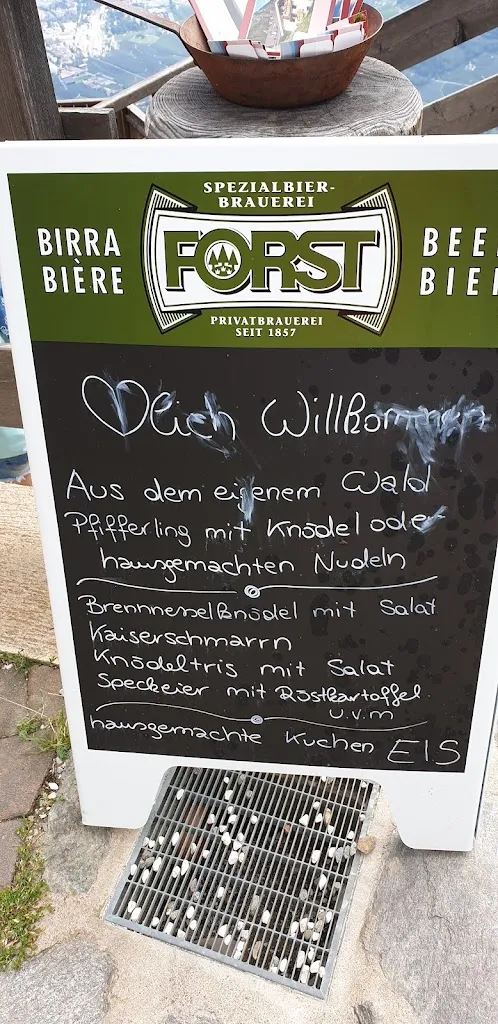 SPEZIALBIER-
BRAUEREI
BIRRA
BIÈRE
FORST
BEE
BIE
PRIVATBRAUEREI
SEIT 1857
♡lich Willkommen
Aus dem eigenem Wald
Pfifferling mit Knödel oder
hausgemachten Nudeln
Brennnesselknödel mit Salat
Kaiserschmarrn
Knödeltris mit Salat
Speckeier mit Röstkartoffel
u.v.m
hausgemachte Kuchen EIS